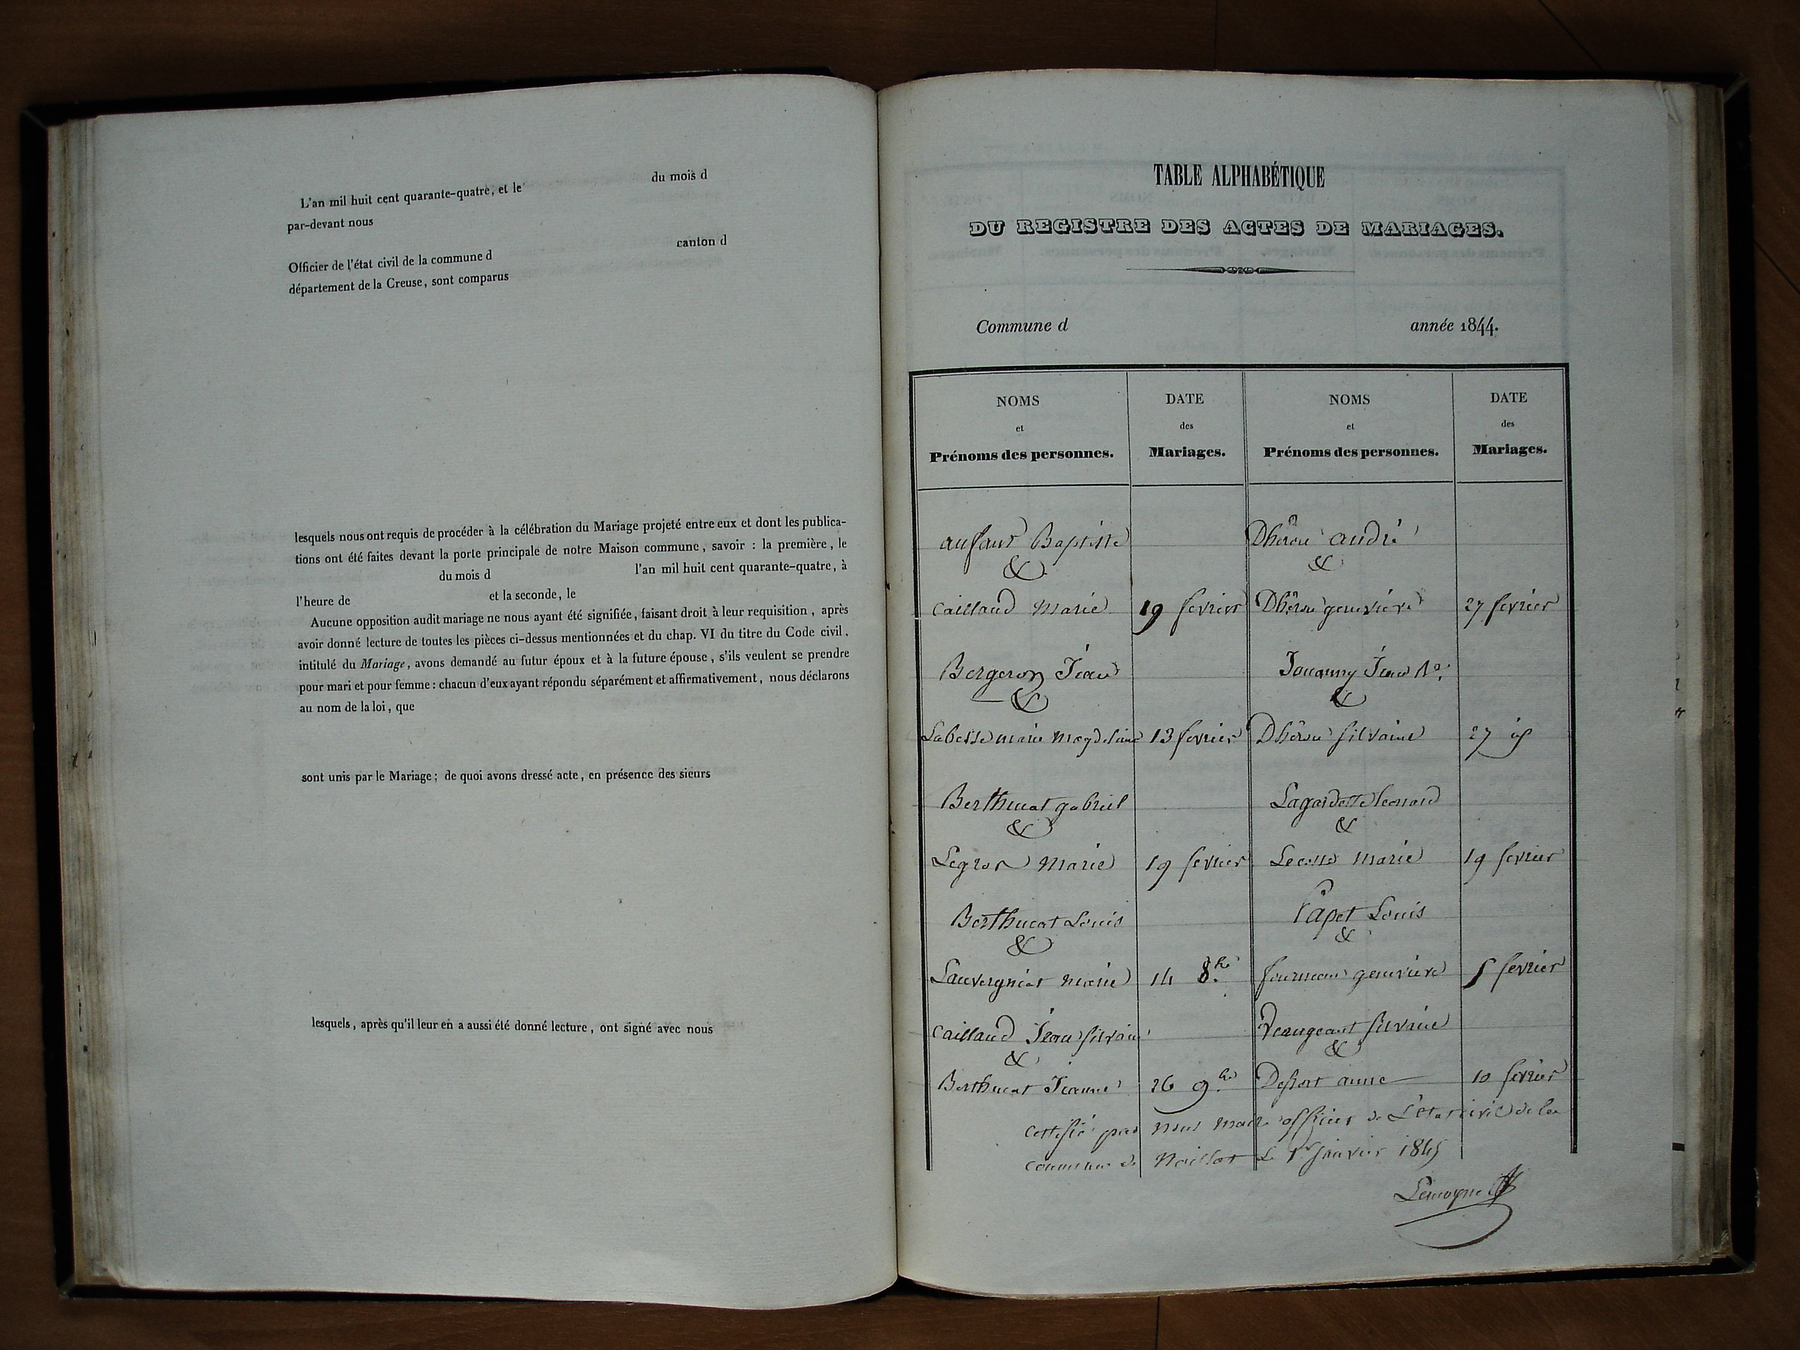 L'an mil huit cent quarante-quatre, et le du mois d
par-devant nous
Officier de l'état civil de la commune d canton d
département de la Creuse, sont comparus
lesquels nous ont requis de procéder à la célébration du Mariage projeté entre eux et dont les publica-
tions ont été faites devant la porte principale de notre Maison commune, savoir : la première, le
du mois d l'an mil huit cent quarante-quatre, à
l'heure de et la seconde, le
Aucune opposition audit mariage ne nous ayant été signifiée, faisant droit à leur requisition, après
avoir donné lecture de toutes les pièces ci-dessus mentionnées et du chap. VI du titre du Code civil,
intitulé du Mariage, avons demandé au futur époux et à la future épouse, s'ils veulent se prendre
pour mari et pour femme : chacun d'eux ayant répondu séparément et affirmativement, nous déclarons
au nom de la loi, que
sont unis par le Mariage; de quoi avons dressé acte, en présence des sieurs
lesquels, après qu'il leur en a aussi été donné lecture, ont signé avec nous
TABLE ALPHABÉTIQUE
DU REGISTRE DES ACTES DE MARIAGES.
Commune d année 1844.
NOMS DATE NOMS DATE
et des et des
Prénoms des personnes. Mariages. Prénoms des personnes. Mariages.
aufaur Baptiste Dhérou andré
& &
Caillaud Marie 19 fevrier Dhérou genevieve 27 fevrier
Bergeron Jean Jouanny Jean
& &
Labesse marie magdelaine 13 fevrier Dhérou silvaine 27
Berthucat gabriel Lagardette leonard
& &
Legros Marie 19 fevrier marie 19 fevrier
Berthucat Louis Papet Louis
& &
Lauvergnat marie 14 8bre fourneau genevieve 5 fevrier
Caillaud Jean silvain Veaugeant silvaine
& &
Berthucat Jeanne 26 9bre anne 10 fevrier
Certifié par nous Maire officier de L'état civil de la
commune de Naillat Le 1er Janvier 1845
Lemoyne